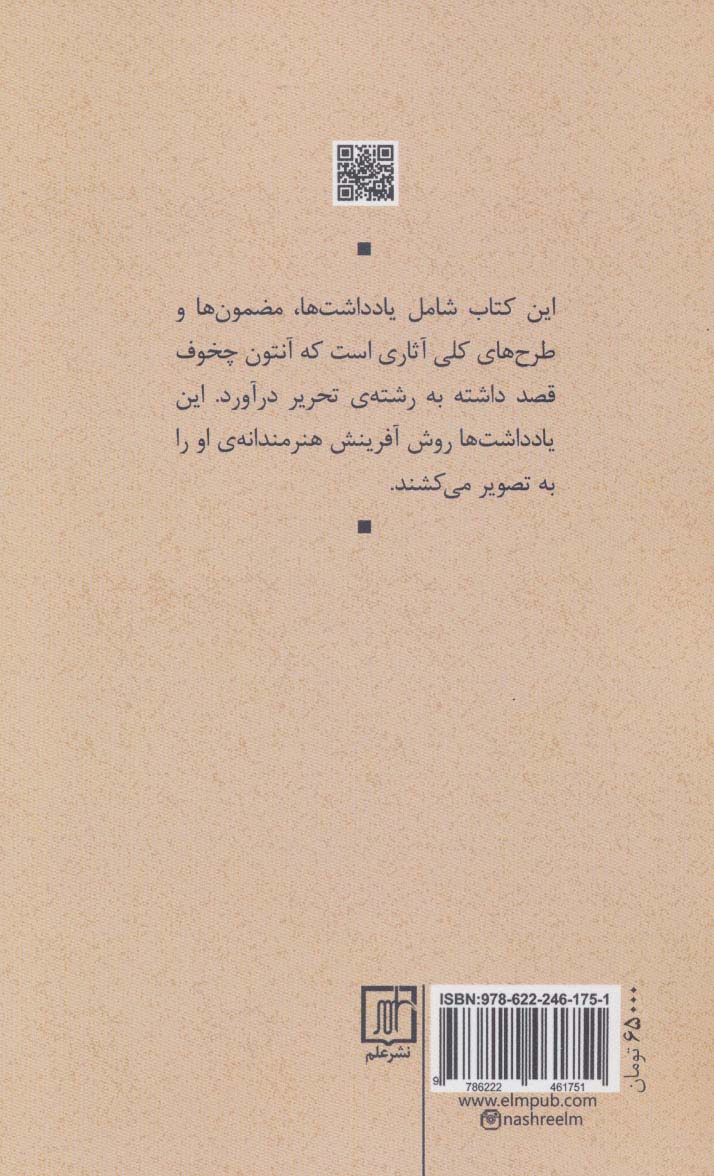 این کتاب شامل یادداشت‌ها، مضمون‌ها و
طرح‌های کلی آثاری است که آنتون چخوف
قصد داشته به رشته‌ی تحریر درآورد. این
یادداشت‌ها روش آفرینش هنرمندانه‌ی او را
به تصویر می‌کشند.
نشرعلم
ISBN:978-622-246-175-1
9 786222 461751
www.elmpub.com
nashreelm
۶۵۰۰۰ تومان